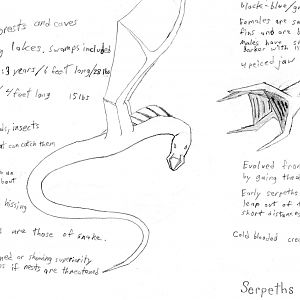 orests and caves
lakes, swamps included
: 3 years / 6 feet long / 28 lbs
/ 4 feet long 15 lbs
ds, insects
at can catch them
bout
hissing
are those of snake.
ned or showing superiority
s if nests are threatened
black-blue/g
Females are s
fins and are b
males have s
darker with li
4 peiced jaw
Evolved from
by going thro
Early serpeths
leap out of
short distances
Cold blooded cre
Serpeths